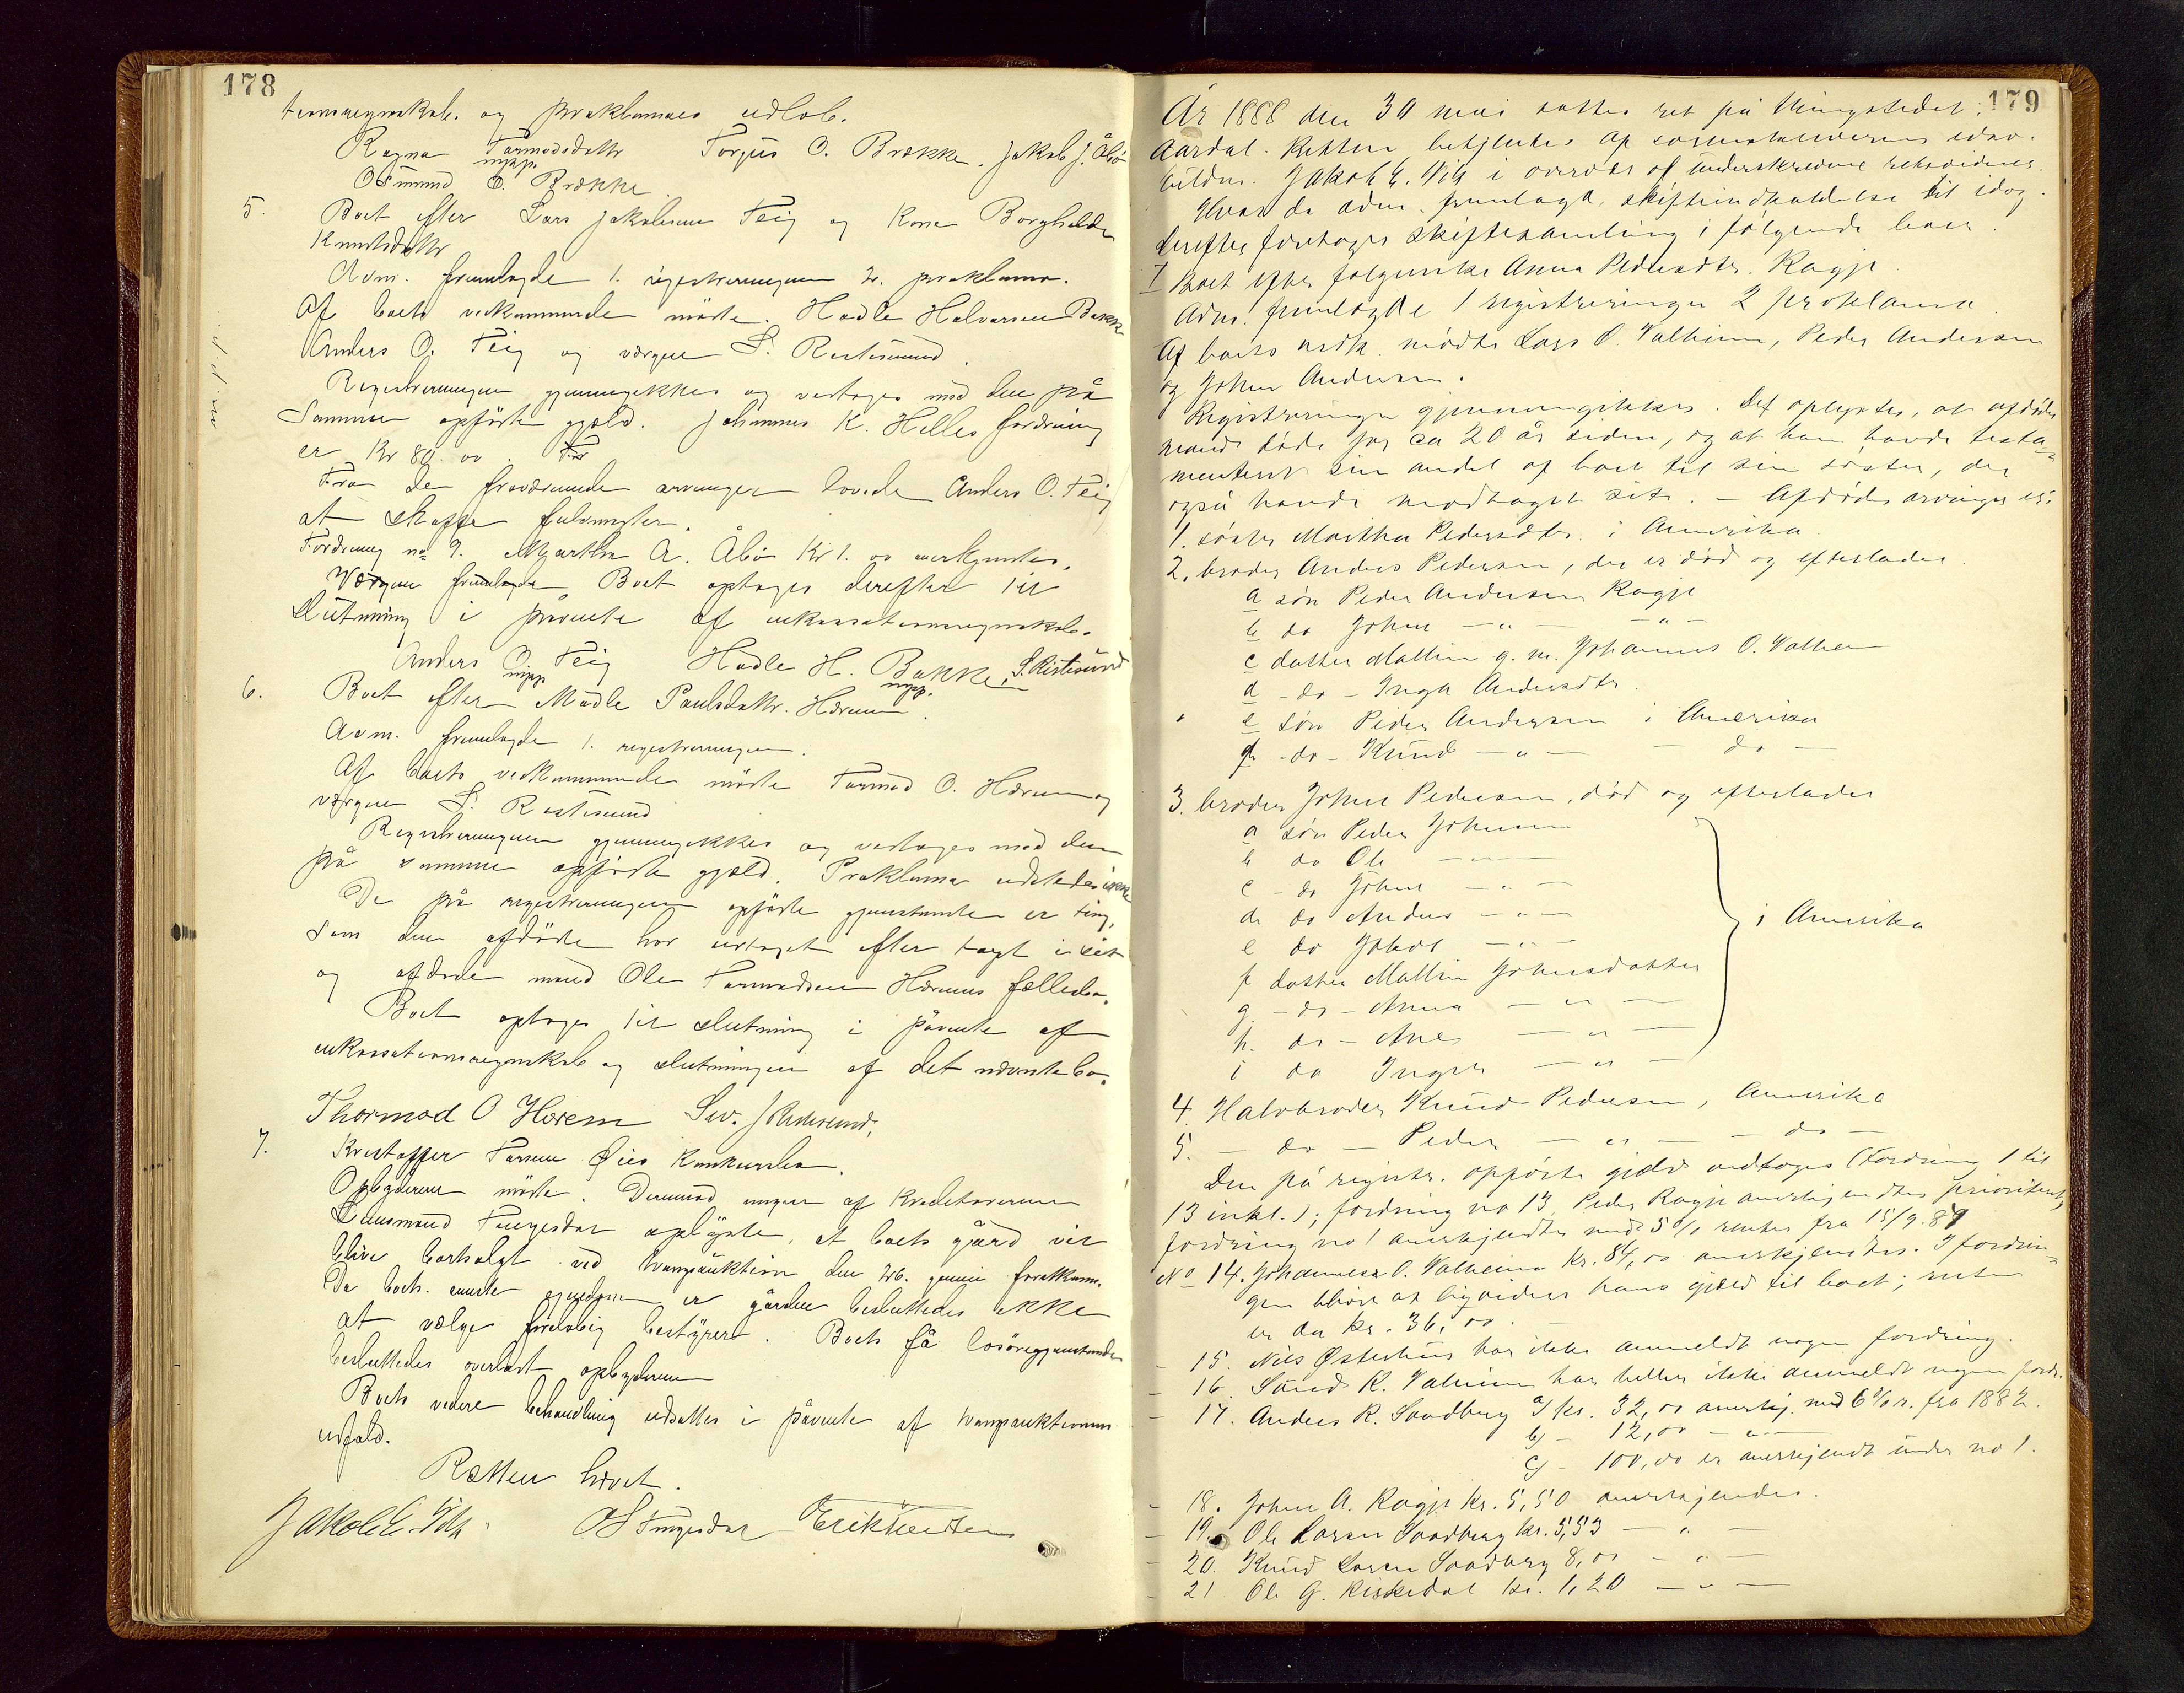 178
tionsregnskab og proklamaets udløb.
Ragna Tormodsdatter Torgus O. Brække. Jakob J. Åbø
mpp.
Osmund O. Brække
5. Boet efter Lars Jakobsen Teig og Kone Borghilda
Knutsdatter
Adm. fremlagde 1. registreringen 2. proklama.
Af boets vedkommende mødte. Hadle Halvorsen Bakke
Anders O. Teig og værgen S. Ristesund.
Registreringen gjennemgikkes og vedtoges med den på
Samme opførte gjæld. Johannes K. Helles fordring
er Kr 80.00.
Fra de fraværende arvinger lovede Anders O. Teig
at skaffe fuldmagter.
Fordring no 9. Martha A. Åbø Kr 1.00 anerkjendtes.
Boet optoges derefter til
slutning i påvente af inkassationsregnskab.
Anders O. Teig Hadle H. Bakke, S. Ristesund
mpp mpp.
6. Boet efter Madle Paulsdatter Hærem.
Adm. fremlagde 1. registreringen.
Af boets vedkommende mødte Tormod O. Hærem og
værgen S. Ristesund
Registreringen gjennemgikkes og vedtoges med den
på samme opførte gjæld. Proklama udstedes ikke
De på registreringen opførte gjenstande er ting,
som den afdøde har udtaget efter taxt i sit
og afdøde mand Ole Tormodsen Hærems fællesbo.
Boet optoges til slutning i påvente af
inkassationsregnskab og slutningen af det nævnte bo.
Thormod O Hærem Siv. J Ristesund,
7. Kristoffer Tørresen Øies Konkursbo.
Opbyderen mødte. Derimod ingen af kreditorerne
Lensmand Tungesdar oplyste, at boets gård vil
blive bortsolgt ved tvangsauktion den 26. juni førstkomm.
Da boets eneste eiendom er gården besluttedes ikke
at vælge foreløbig bestyrer. Boets få løsøregjenstande
besluttedes overladt opbyderen
Boets videre behandling udsattes i påvente af tvangsauktionens
udfald.
Retten hævet.
Jakob E. Vik OS Tungesdar
179
År 1888 den 30 mai sattes ret på thingstedet:
Aardal. Retten betjentes af sorenskriverens edsv.
fuldm. Jakob E. Vik i overvær af underskrevne retsvidner.
Hvor da adm. fremlagde, skifteindkaldelse til idag.
Derefter foretoges skiftesamling i følgende boer.
I Boet efter følgeenke Anna Pedersdtr. Ragje
Adm. fremlagde 1 registreringen 2 proklama.
Af boets vedk. mødte Lars O. Valheim, Peder Andersen
og John Andersen.
Registreringen gjennemgikkes. Det oplystes, at afdødes
mand døde for ca 20 år siden, og at han havde testa-
menteret sin andel af boet til sin søster, der
også havde modtaget sit. – Afdødes arvinger er:
1. søster Martha Pedersdtr. i Amerika
2. broder Anders Pedersen, der er død og efterlader
a søn Peder Andersen Ragje
b do John –"– –"–
c datter Malline g. m. Johannes O. Valheim
d – do – Inga Andersdtr.
e søn Peder Andersen i Amerika
f – do – Knud –"– – do –
3. broder John Pedersen, død og efterlader
a søn Peder Johnsen
b do Ole –"–
c – do John –"–
d do Anders –"–
e do Jakob –"–
f datter Malline Johnsdatter
g – do – Anna –"–
h. do – Ane –"–
i do Inger –"–
i Amerika
4. Halvbroder Knud Pedersen, Amerika
5. – do – Peder –"– – do –
Den på registr. opførte gjæld vedtoges (fordring 1 til
13 inkl.); fordring no 13 Peder Ragje anerkjendtes prioritet,
fordring no 1 anerkjendtes med 5% renter fra 15/9.87
No 14. Johannes O. Valheim kr. 84,00 anerkjendtes. I fordrin-
gen bliver at liqvidere hans gjæld til boet; resten
er da kr. 36,00.
– 15. Nils Østerhus har ikke anmeldt nogen fordring.
– 16. Svend K. Valheim har heller ikke anmeldt nogen fordr.
– 17. Anders R. Sandberg a) kr. 32,00 anerkj. med 6% r. fra 1882.
b) – 12,00 –"–
c) – 100,00 er anerkjendt under no 1.
– 18. John A. Ragje kr. 5,50 anerkjendes.
– 19. Ole Larsen Sandberg kr. 5,53 –"–
– 20. Knud Larsen Sandberg 8,00 –"–
– 21 Ole G. Riskedal kr. 1,20 –"–